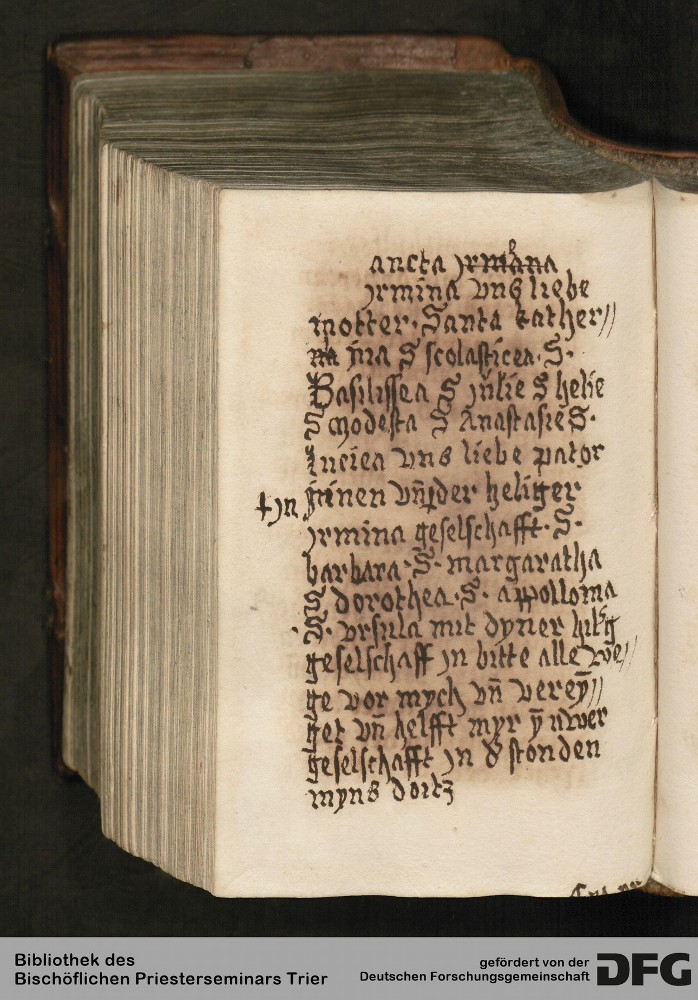 ancta jrmana
jrmina vns liebe
motter · Santa kather//
na jna S scolasticea · S ·
Basilissea S julie S helie
S modesta S Anastasie S ·
luciea vns liebe pator
jnnen vñ der heliger
†jn
jrmina geselschafft · S ·
barbara · S · margaratha
S dorothea · S · appollonia
· S · vrsula mit dyner hilg
geselschaff jn bitte alle we//
ge vor mych vñ vereÿ//
get vñ helfft myr ÿ uwer
geselschafft jn d stonden
myns doitz
Bibliothek des
Bischöflichen Priesterseminars Trier
gefördert von der
Deutschen Forschungsgemeinschaft
DFG